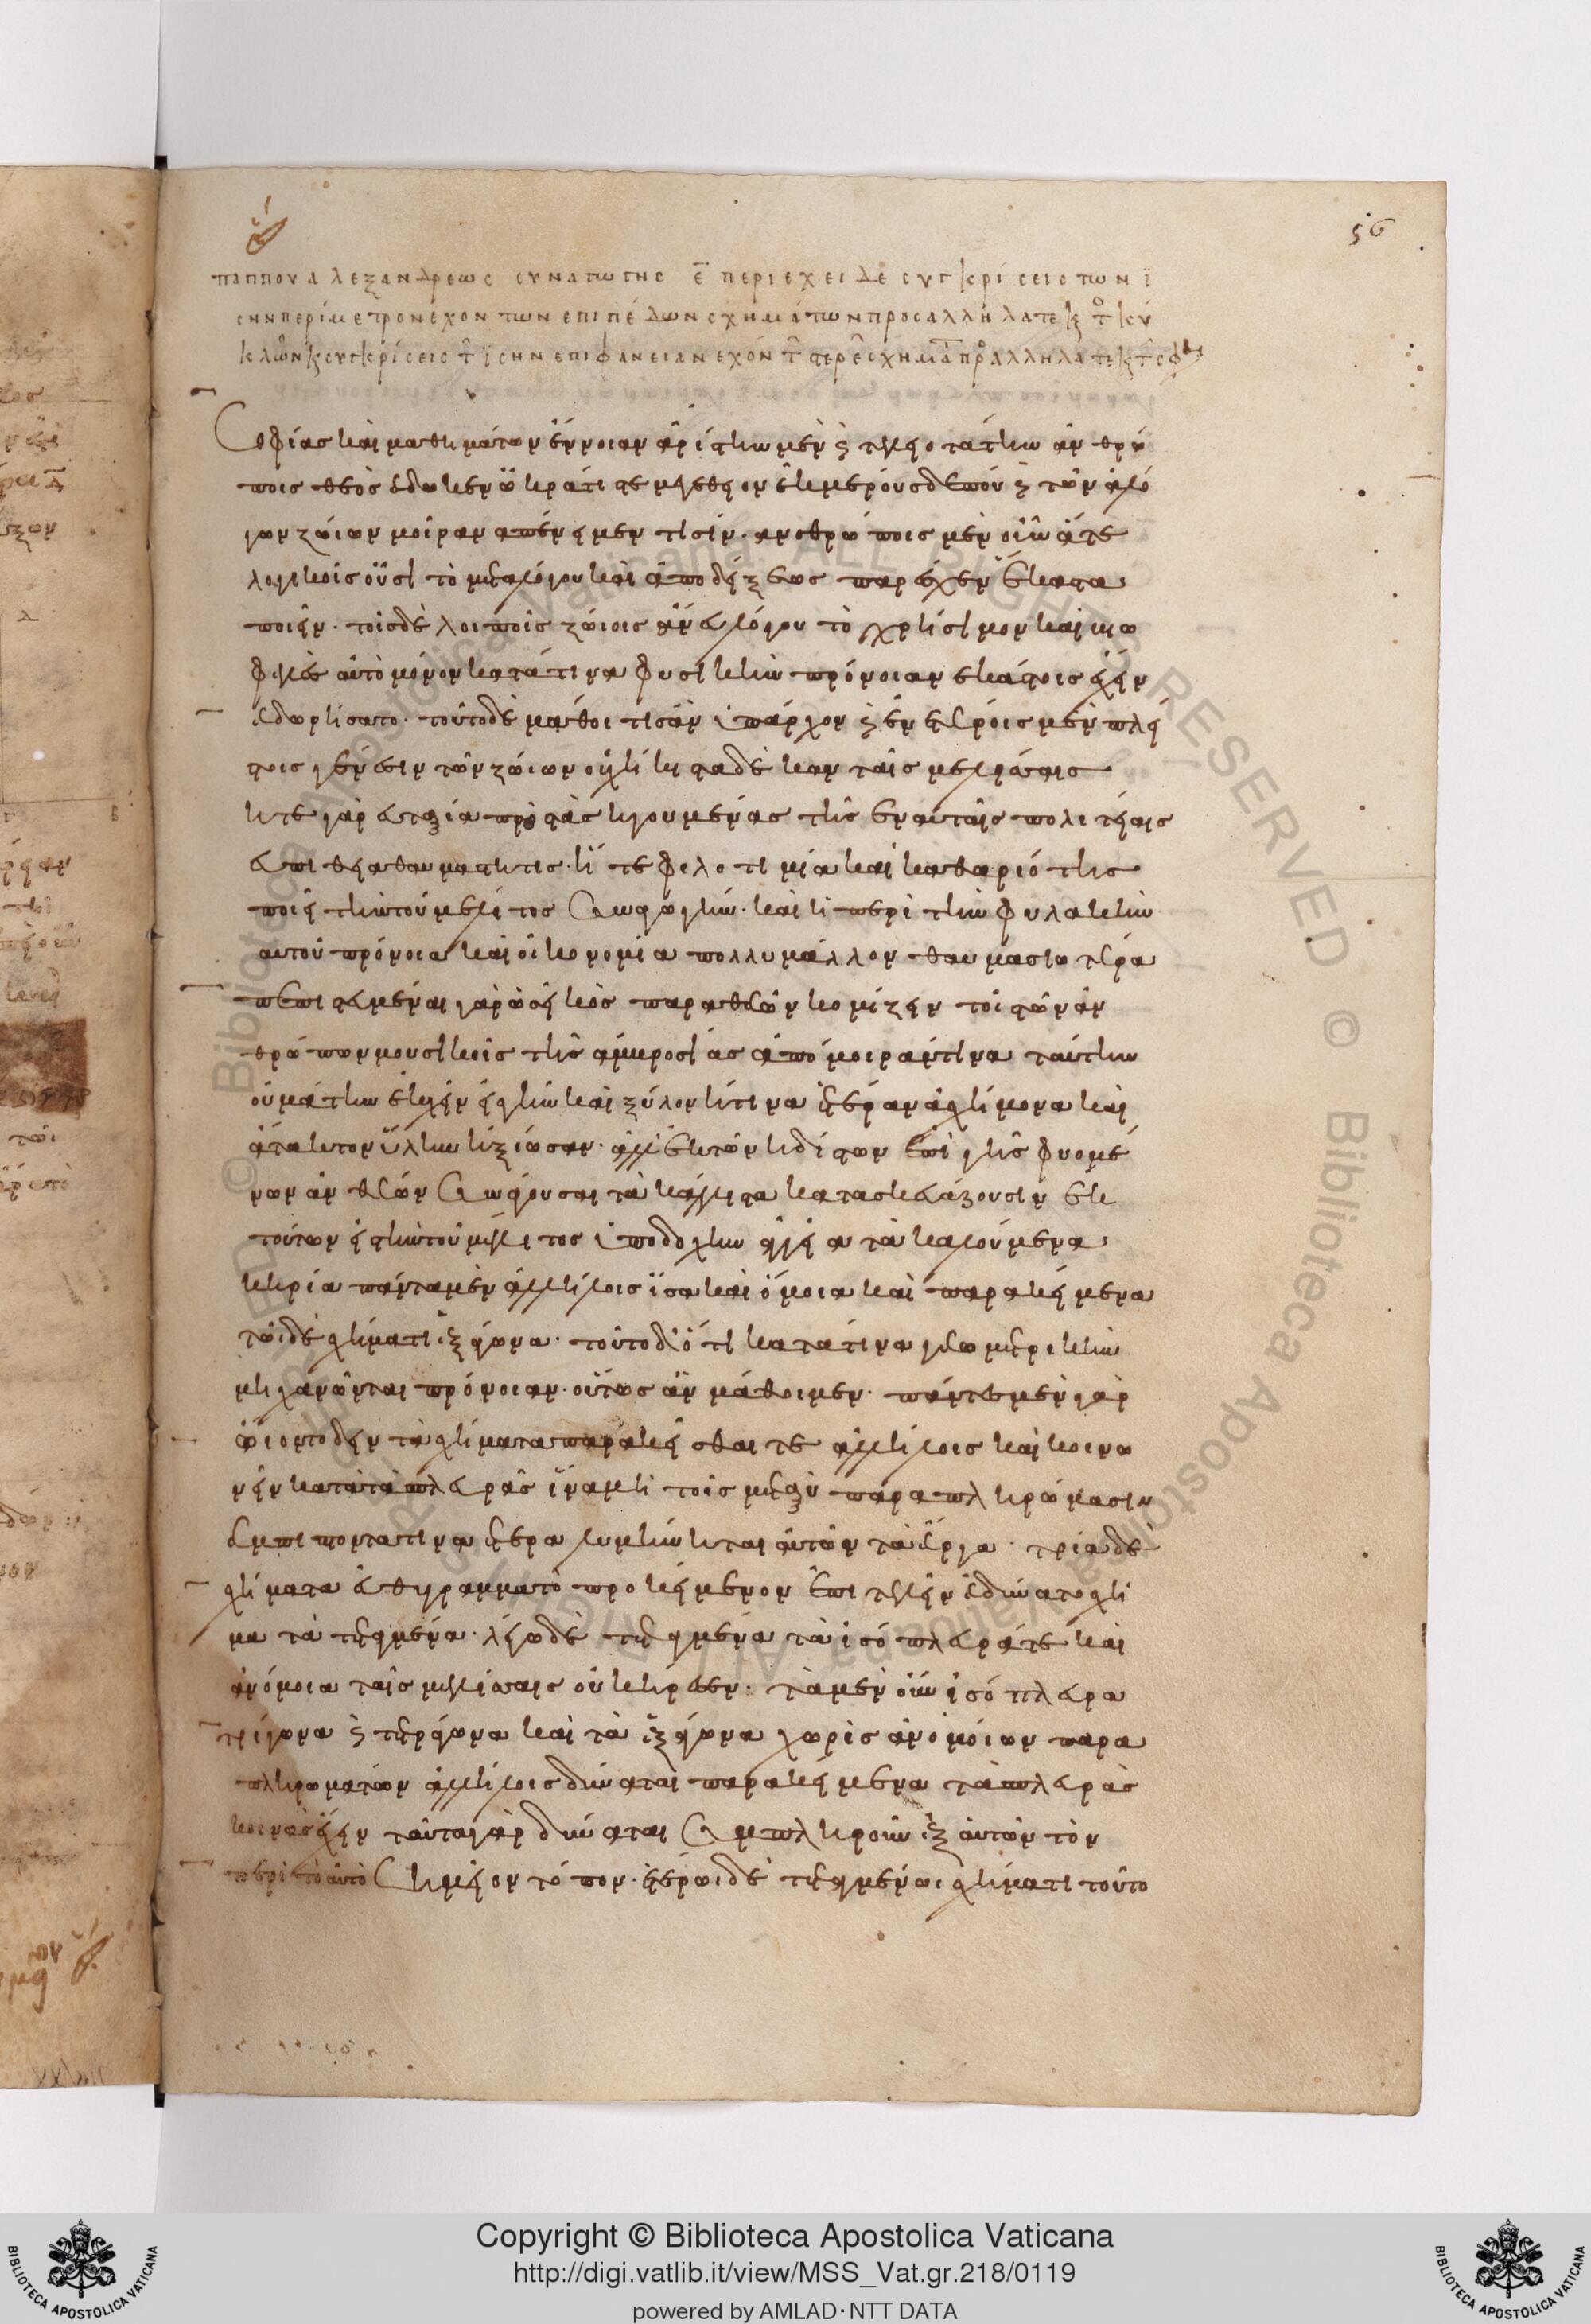 56
παππου αλεξανδρεως συναγωγης ε̅ περιεχει δε συγκρίσεις των ϊ
σην περίμετρον εχον των επιπέδων σχημάτων προς αλληλα τε κ τ κύ
κλων κ συγκρίσεις τ ϊσην επιφανειαν εχόν τ στερε σχημα πρ αλληλα τε κ τ σφ
Σοφίας καὶ μαθημάτων ἔννοιαν ἀρίστην μὲν κ τελεοτάτην ἀνθρώ
ποις θεὸς ἔδωκεν ὦ κράτιστε μεγεθίον ἐκ μέρους δέ που κ τῶν ἀλό
γων ζώιων μοῖραν ἀπένειμεν τισίν. ἀνθρώποις μὲν οὖν ἅτε
λογικοῖς οὖσι τὸ μετὰ λόγου καὶ ἀποδείξεως παρέσχεν ἕκαστα
ποιεῖν. τοῖς δὲ λοιποῖς ζώιοις ἄνευ λόγου τὸ χρήσιμον καὶ βιω
φελὲς αὐτὸ μόνον κατά τινα φυσικὴν πρόνοιαν ἑκάστοις ἔχειν
ἐδωρήσατο. τοῦτο δὲ μάθοι τις ἂν ὑπάρχον κ ἐν ἑτέροις μὲν πλεί
στοις γένεσιν τῶν ζώιων οὐχ ἥκιστα δὲ κἀν ταῖς μελίσσαις
ἥ τε γὰρ εὐταξία πρὸς τὰς ἡγουμένας τῆς ἐν αὐταῖς πολιτείας
εὐπειθεια θαυμαστή τις. ἥ τε φιλοτιμία καὶ καθαριότης
ποιεῖ τὴν τοῦ μέλιτος συναγωγήν. καὶ ἡ περὶ τὴν φυλακὴν
αὐτοῦ πρόνοια καὶ οἰκονομία πολὺ μᾶλλον θαυμασιωτέρα
πεπιστευμέναι γὰρ ὡς εἰκὸς παρὰ θεῶν κομίζειν τοῖς τῶν ἀν
θρώπων μουσικοῖς τῆς ἀμβροσίας ἀπόμοιράν τινα ταύτην
οὐ μάτην ἐκχεῖν εἰς γῆν καὶ ξύλον ἤ τινα ἑτέραν ἀσχήμονα καὶ
ἄτακτον ὕλην ἠξίωσαν. ἀλλ' ἐκ τῶν ἡδίστων ἐπὶ γῆς φυομέ
νων ἀνθέων συνάγουσαι τὰ κάλλιστα κατασκευάζουσιν ἐκ
τούτων εἰς τὴν τοῦ μέλιτος ὑποδοχὴν ἀγγεῖα τὰ καλούμενα
κηρία πάντα μὲν ἀλλήλοις ἴσα καὶ ὅμοια καὶ παρακείμενα
τῶι δὲ σχήματι ἑξάγωνα. τοῦτο δ' ὅτι κατά τινα γεωμετρικὴν
μηχανῶνται πρόνοιαν. οὕτως ἂν μάθοιμεν. πάντως μὲν γὰρ
ὤιοντο δεῖν τὰ σχήματα παρακεῖσθαι τε ἀλλήλοις καὶ κοινω
νεῖν κατὰ τὰς πλευρὰς ἵνα μὴ τοῖς μεταξὺ παραπληρώμασιν
ἐμπίπτοντά τινα ἕτερα λυμήνηται αὐτῶν τὰ ἔργα. τρία δὲ
σχήματα εὐθύγραμμα τὸ προκείμενον ἐπιτελεῖν ἐδύνατο σχή
μα τὰ τεταγμένα. λέγω δὲ τεταγμένα τὰ ἰσόπλευρά τε καὶ
ἀνόμοια ταῖς μελίσσαις οὐκ ἤρεσεν. τὰ μὲν οὖν ἰσόπλευρα
τρίγωνα κ τετράγωνα καὶ τὰ ἑξάγωνα χωρὶς ἀνομοίων παρα
πληρωμάτων ἀλλήλοις δύναται παρακείμενα τὰς πλευρὰς
κοινὰς ἔχειν ταῦτα γὰρ δύναται συμπληροῦν ἐξ αὑτῶν τὸν
περὶ τὸ αὐτὸ σημεῖον τόπον. ἑτέρωι δὲ τεταγμένωι σχήματι τοῦτο
Copyright © Biblioteca Apostolica Vaticana
http://digi.vatlib.it/view/MSS_Vat.gr.218/0119
powered by AMLAD·NTT DATA